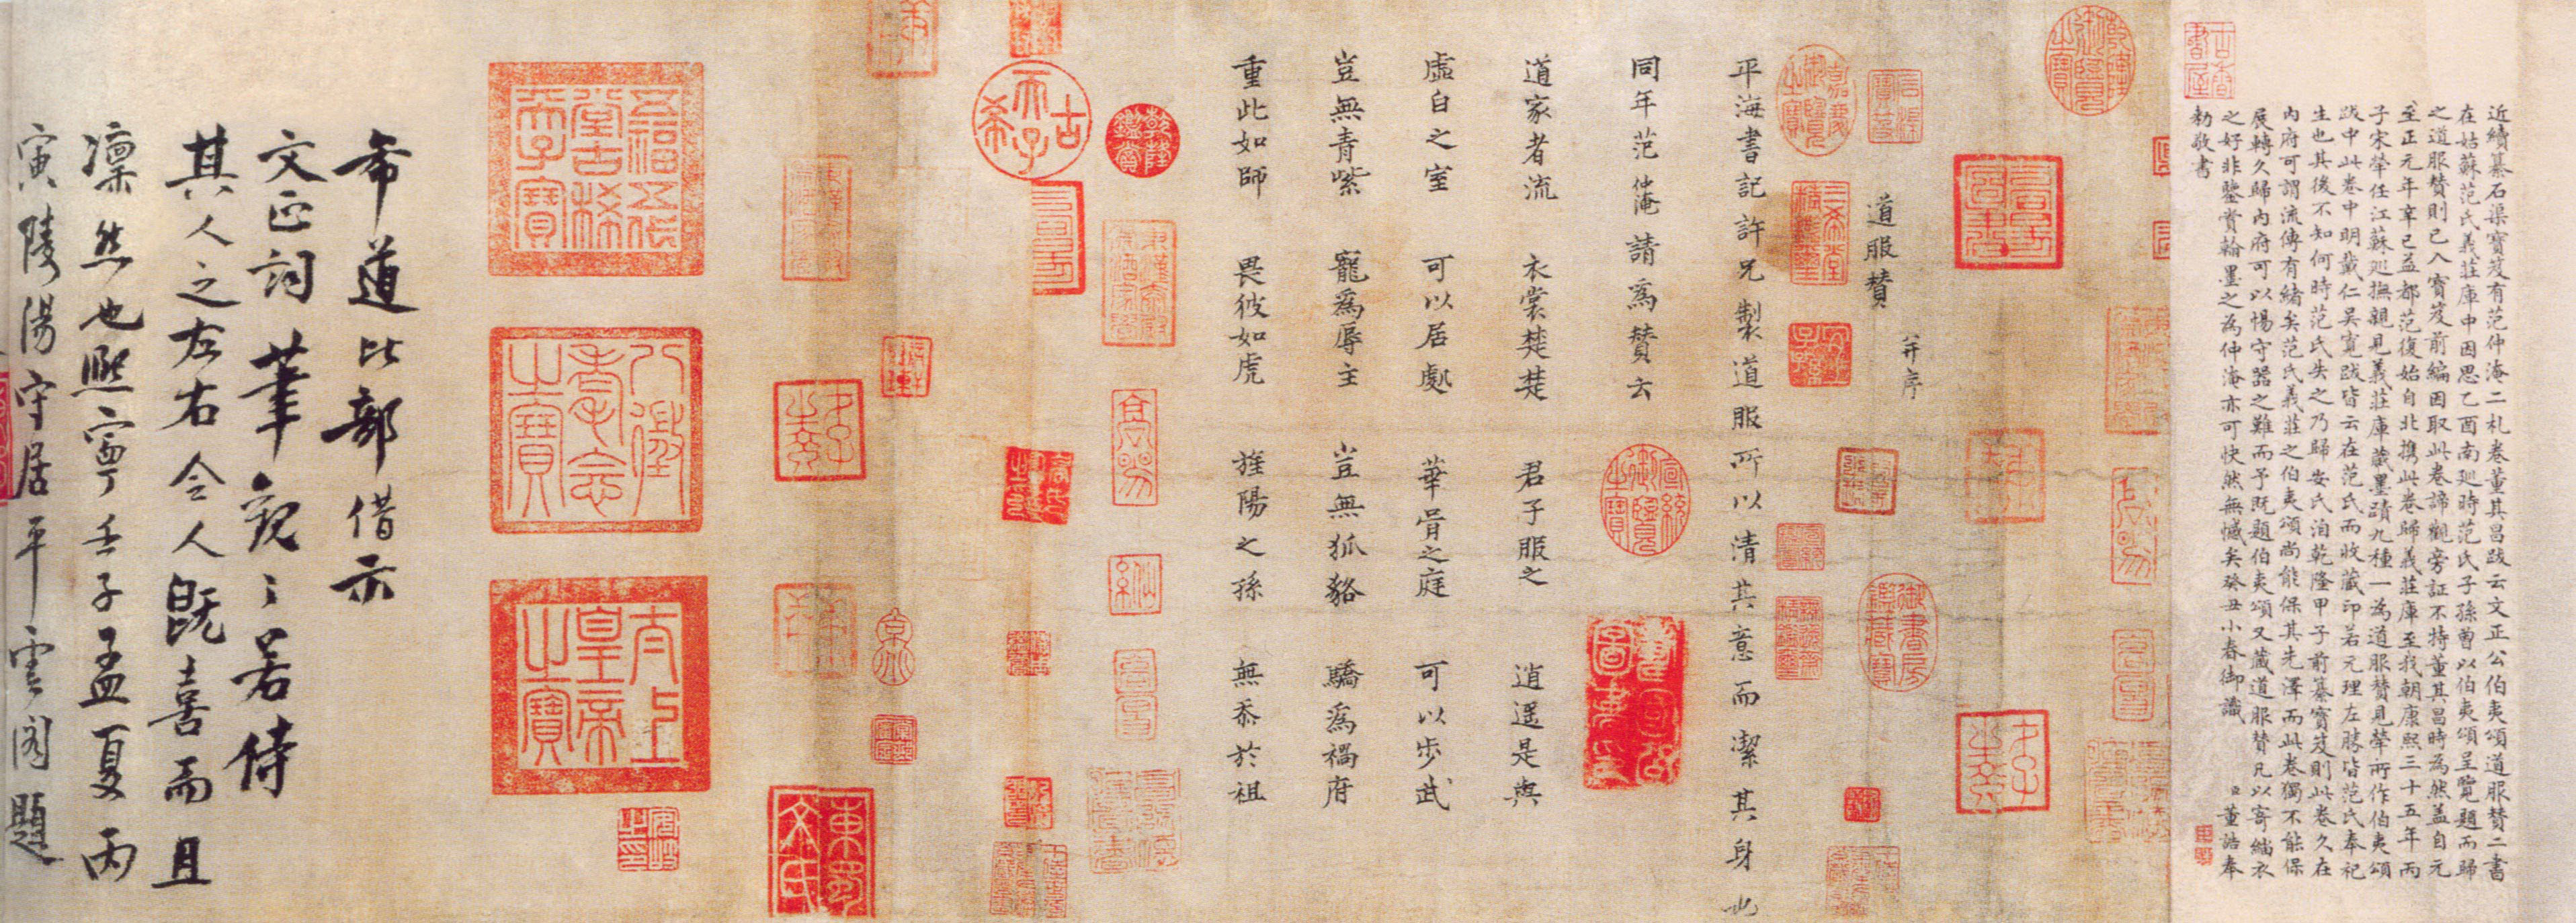 古香書屋
近續纂石渠寶笈有范仲淹二札卷董其昌跋云文正公伯夷頌道服贊二書
在姑蘇范氏義莊庫中因思乙酉南巡時范氏子孫曾以伯夷頌呈覽題而歸
之道服贊則已入寶笈前編因取此卷諦觀旁証不持董其昌時為然蓋自元
至正元年辛巳益都范復始自北携此卷歸義莊庫至我朝康熙三十五年丙
子宋犖任江蘇巡撫親見義莊庫藏墨蹟九種一為道服贊見犖所作伯夷頌
跋中此卷中明戴仁吳寬跋皆云在范氏而收藏印若元理左勝皆范氏奉祀
生也其後不知何時范氏失之乃歸安氏洎乾隆甲子前纂寶笈則此卷久在
內府可謂流傳有緒矣范氏義莊之伯夷頌尚能保其先澤而此卷獨不能保
展轉久歸內府可以惕守器之難而予既題伯夷頌又藏道服贊凡以寄緇衣
之好非鑒賞翰墨之為仲淹亦可快然無憾矣癸丑小春御識 臣董誥奉
勅敬書
乾隆御覽之寶
道服贊 并序
御書房鑑藏寶
嘉慶御覽之寶
石渠寶笈
三希堂精鑑璽
宜子孫
平海書記許兄製道服所以清其意而潔其身也
同年范仲淹請為贊云
宣統御覽之寶
道家者流 衣裳楚楚 君子服之 逍遥是與
虛白之室 可以居處 華胥之庭 可以步武
豈無青紫 寵為辱主 豈無狐貉 驕為禍府
重此如師 畏彼如虎 旌陽之孫 無忝於祖
乾隆鑑賞
古希天子
五福五代堂古稀天子寶
八徵耄念之寶
太上皇帝之寶
希道比部借示
文正詞筆觀之若侍
其人之左右令人既喜而且
凛然也熙寧壬子孟夏丙
寅陵陽守居平雲閣題